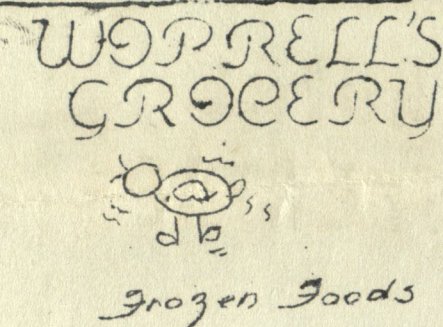 WORRELL'S
GROCERY
Frozen Foods